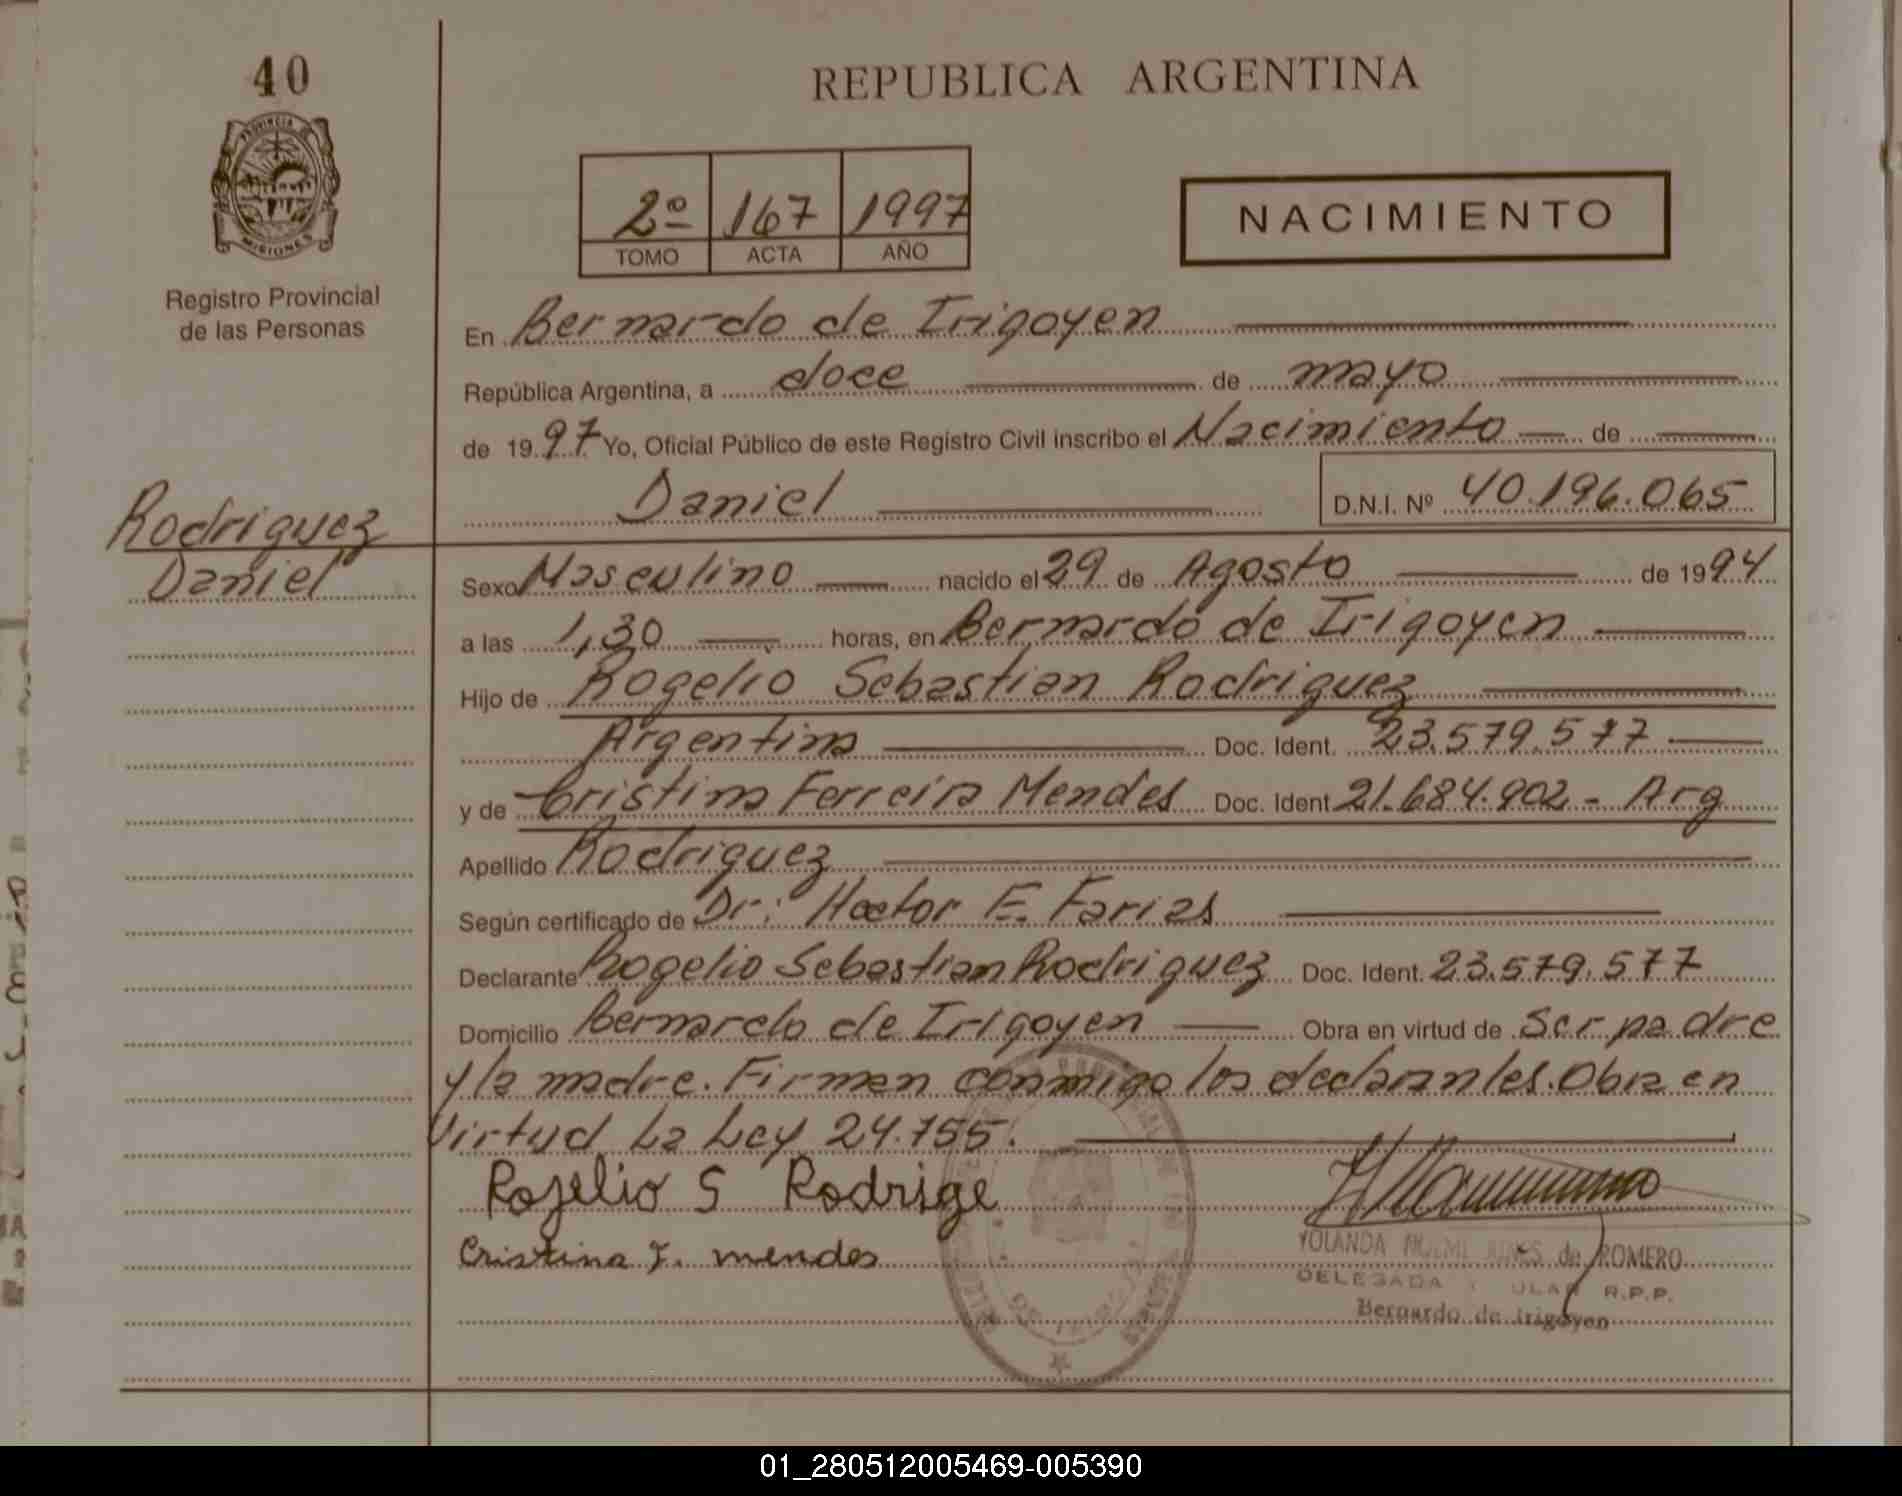 40
REPUBLICA ARGENTINA
PROVINCIA DE
MISIONES
Registro Provincial
de las Personas
2º 167 1997
TOMO ACTA AÑO
NACIMIENTO
En Bernardo de Irigoyen
República Argentina, a doce de mayo
de 1997 Yo, Oficial Público de este Registro Civil inscribo el Nacimiento de
Daniel D.N.I. Nº 40.196.065
Rodriguez
Daniel
Sexo Masculino nacido el 29 de Agosto de 1994
a las 1,30 horas, en Bernardo de Irigoyen
Hijo de Rogelio Sebastian Rodriguez
Argentina Doc. Ident. 23.579.577
y de Cristina Ferreira Mendes Doc. Ident 21.684.902 - Arg
Apellido Rodriguez
Según certificado de Dr: Hector E. Farias
Declarante Rogelio Sebastian Rodriguez Doc. Ident. 23.579.577
Domicilio Bernardo de Irigoyen Obra en virtud de Ser padre
y la madre. Firman conmigo los declarantes. Obra en
Virtud La Ley 24.755.
Rojelio S Rodrige
Cristina F. mendes
YOLANDA NOEMI de ROMERO
DELEGADA R.P.P.
Bernardo de Irigoyen
01_280512005469-005390